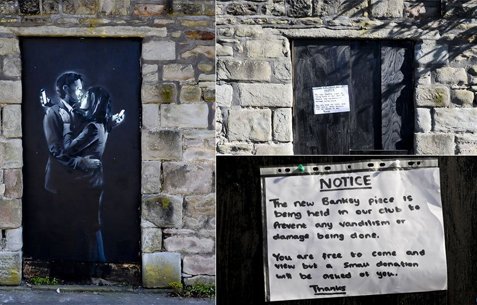 NOTICE
The new Banksy piece is
being held in our club to
prevent any vandilism or
damage being done.
You are free to come and
view but a small donation
will be asked of you.
Thanks